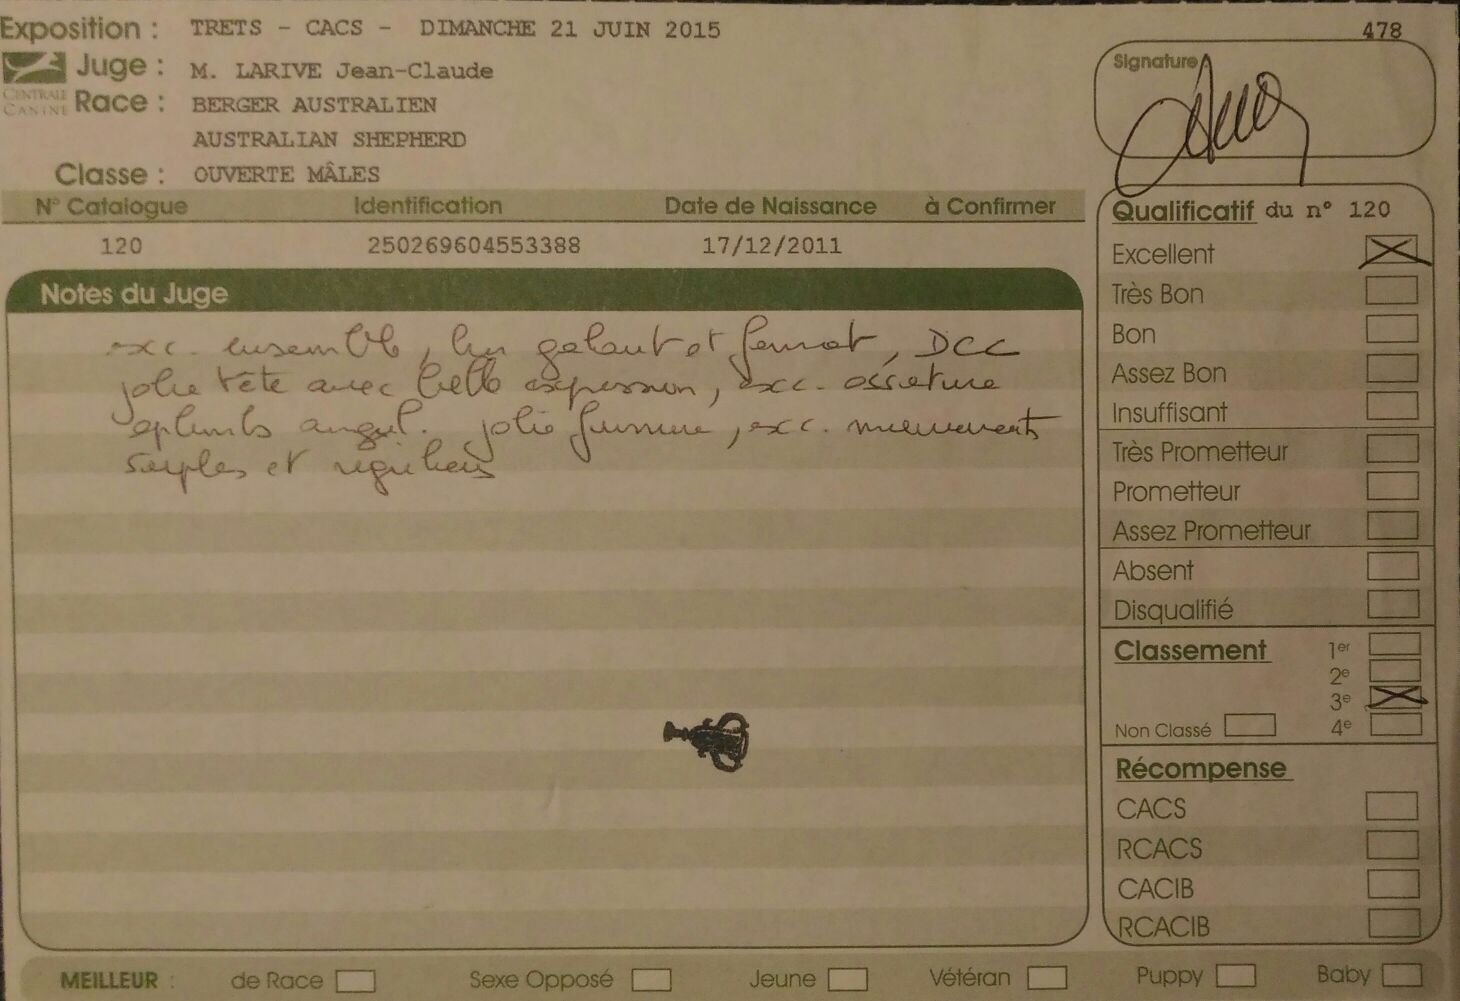 Exposition : TRETS - CACS - DIMANCHE 21 JUIN 2015
478
CENTRALE CANINE
Juge : M. LARIVE Jean-Claude
Race : BERGER AUSTRALIEN
AUSTRALIAN SHEPHERD
Classe : OUVERTE MÂLES
Signature
N° Catalogue Identification Date de Naissance à Confirmer
120 250269604553388 17/12/2011
Notes du Juge
exc. ensemble, et format, DCC
jolie tête avec belle expression, exc. ossature
aplombs angul. jolie fourrure, exc. mouvements
souples et réguliers
Qualificatif du n° 120
Excellent
Très Bon
Bon
Assez Bon
Insuffisant
Très Prometteur
Prometteur
Assez Prometteur
Absent
Disqualifié
Classement 1er
2e
3e
Non Classé 4e
Récompense
CACS
RCACS
CACIB
RCACIB
MEILLEUR : de Race Sexe Opposé Jeune Vétéran Puppy Baby